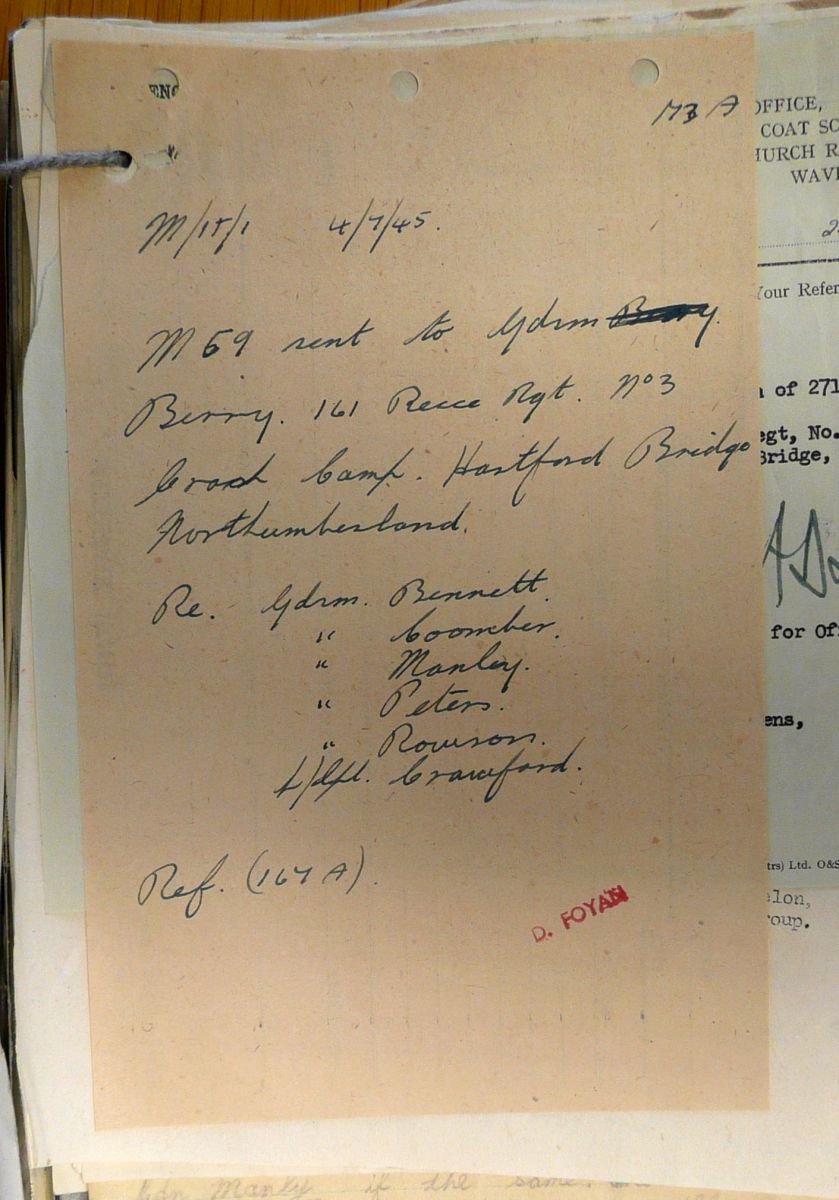 ENG
173 A
M/15/1 4/7/45.
M69 sent to Gdsm Berry.
Berry. 161 Recce Rgt. No 3
Coast Camp. Hartford Bridge
Northumberland.
Re. Gdsm. Bennett.
" Coomber.
" Manley.
" Peters.
" Rowson.
L/Sgt. Crawford.
Ref. (167 A).
D. FOYAN
OFFICE,
COAT SC
HURCH R
WAVE
Your Refer
of 271
egt, No.
Bridge,
for Of
ens,
trs) Ltd. O&S
elon,
roup.
Gdn Manly if the same